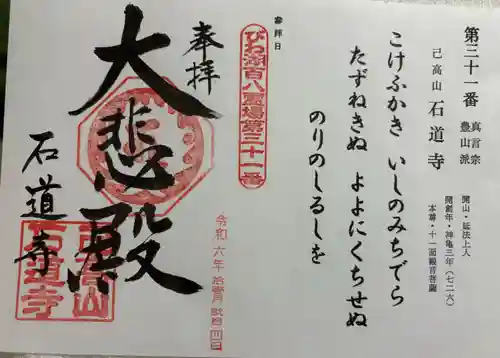 第三十一番 真言宗
豊山派
己高山 石道寺
開山・延法上人
開創年・神亀三年（七二六）
本尊・十一面観音菩薩
こけふかき いしのみちでら
たずねきぬ よよにくちせぬ
のりのしるしを
参拝日
びわ湖百八霊場第三十一番
令和六年拾壹月弐拾四日
奉拝
大悲殿
石道寺
己高山
石道寺